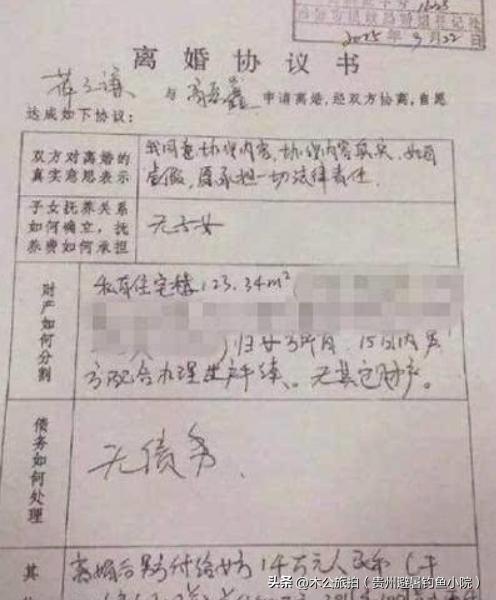 2015年9月22日
离婚协议书
薛之谦 与 高磊鑫 申请离婚,经双方协商,自愿
达成如下协议:
双方对离婚的
真实意思表示
我同意协议内容,协议内容真实,如有
虚假,愿承担一切法律责任.
子女抚养关系
如何确立,抚
养费如何承担
无子女
财产如何分割
私有住宅楼123.34m²(
)归女方所有.15日内男
方配合办理过户手续、无其它财产。
债务如何处理
无债务.
其
离婚后男方付给女方1千万元人民币(千
头条 @木公旅拍(贵州避暑钓鱼小院)